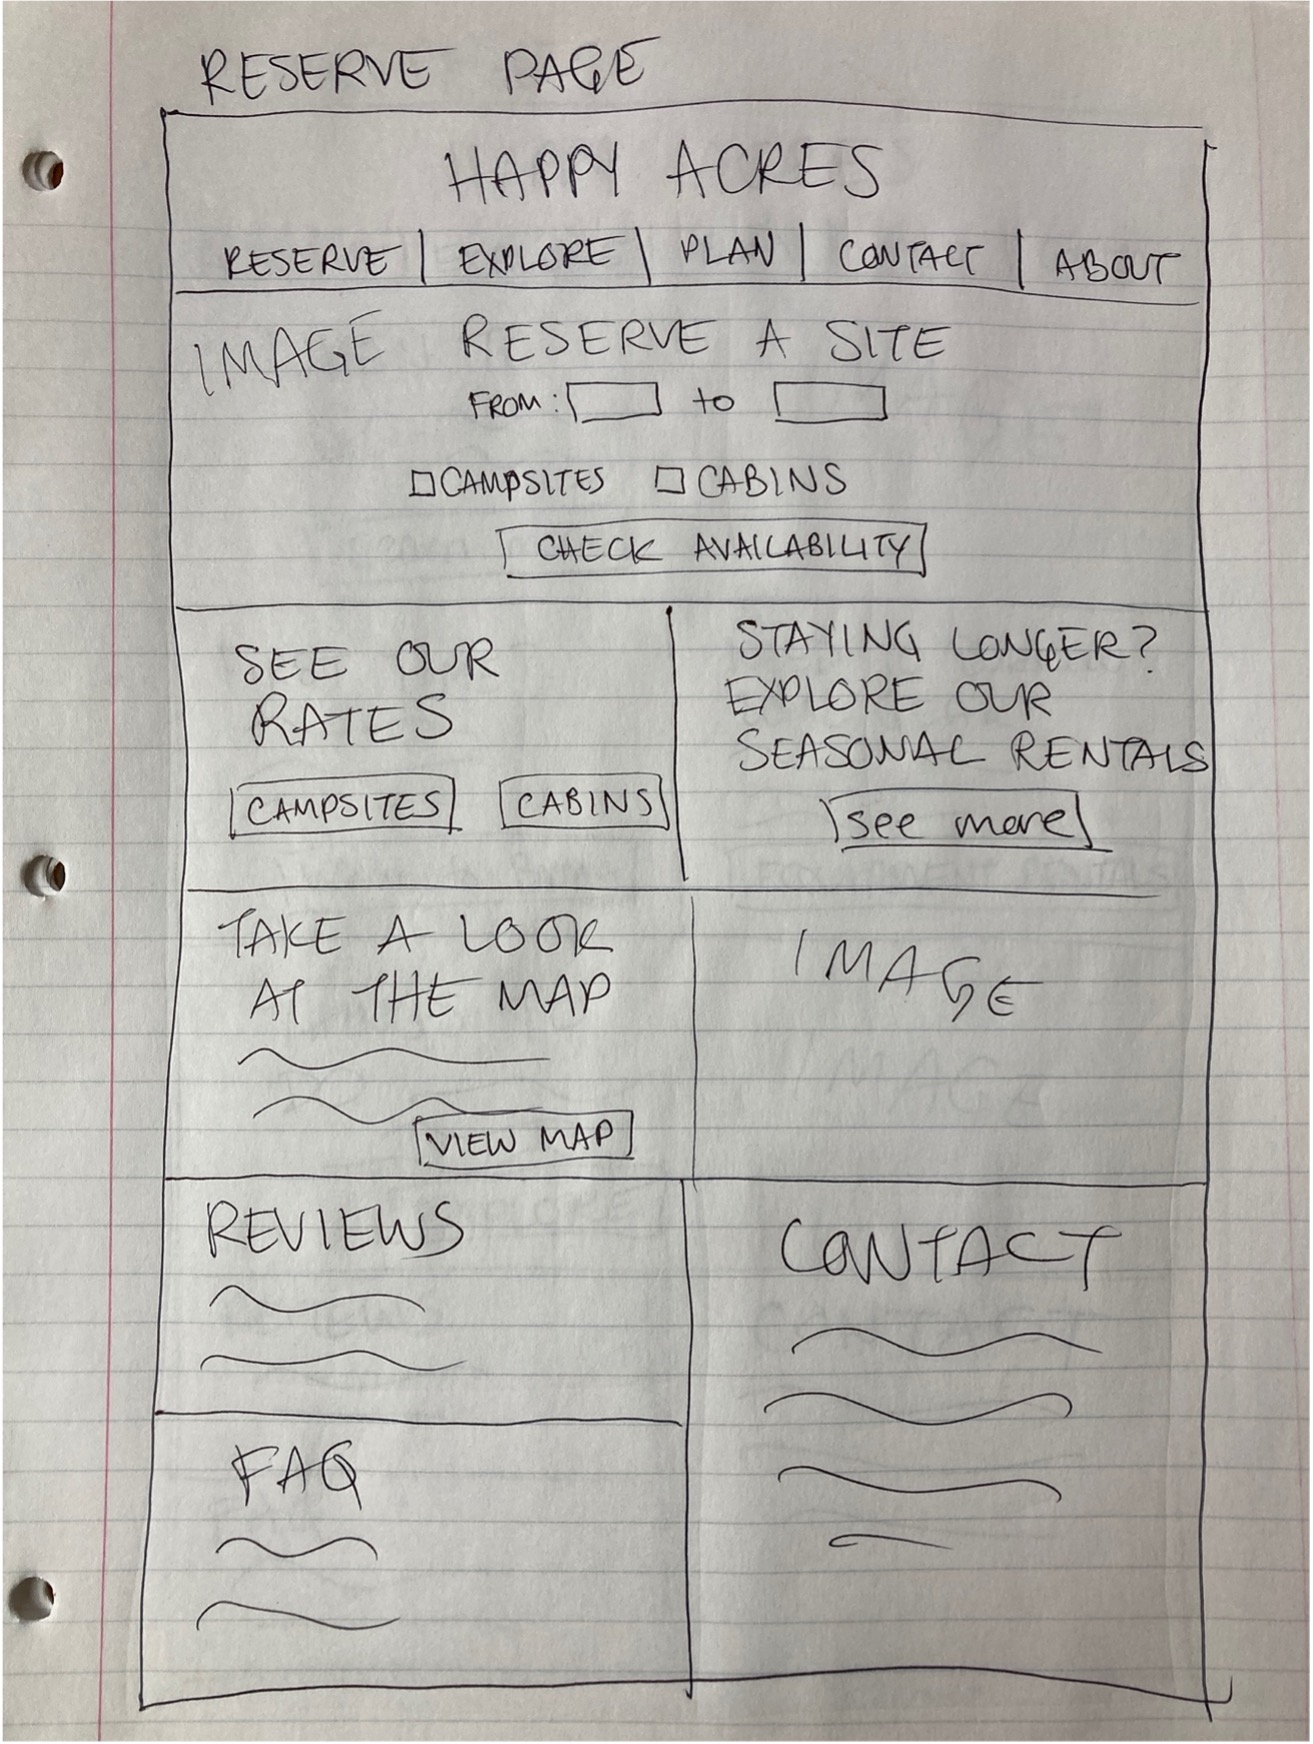 RESERVE PAGE
HAPPY ACRES
RESERVE | EXPLORE | PLAN | CONTACT | ABOUT
IMAGE RESERVE A SITE
FROM: to
CAMPSITES CABINS
CHECK AVAILABILITY
SEE OUR
RATES
CAMPSITES CABINS
STAYING LONGER?
EXPLORE OUR
SEASONAL RENTALS
see more
TAKE A LOOK
AT THE MAP
VIEW MAP
IMAGE
REVIEWS
FAQ
CONTACT